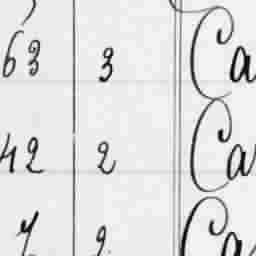 63 3 Ca
42 2 Ca
7 2 Ca